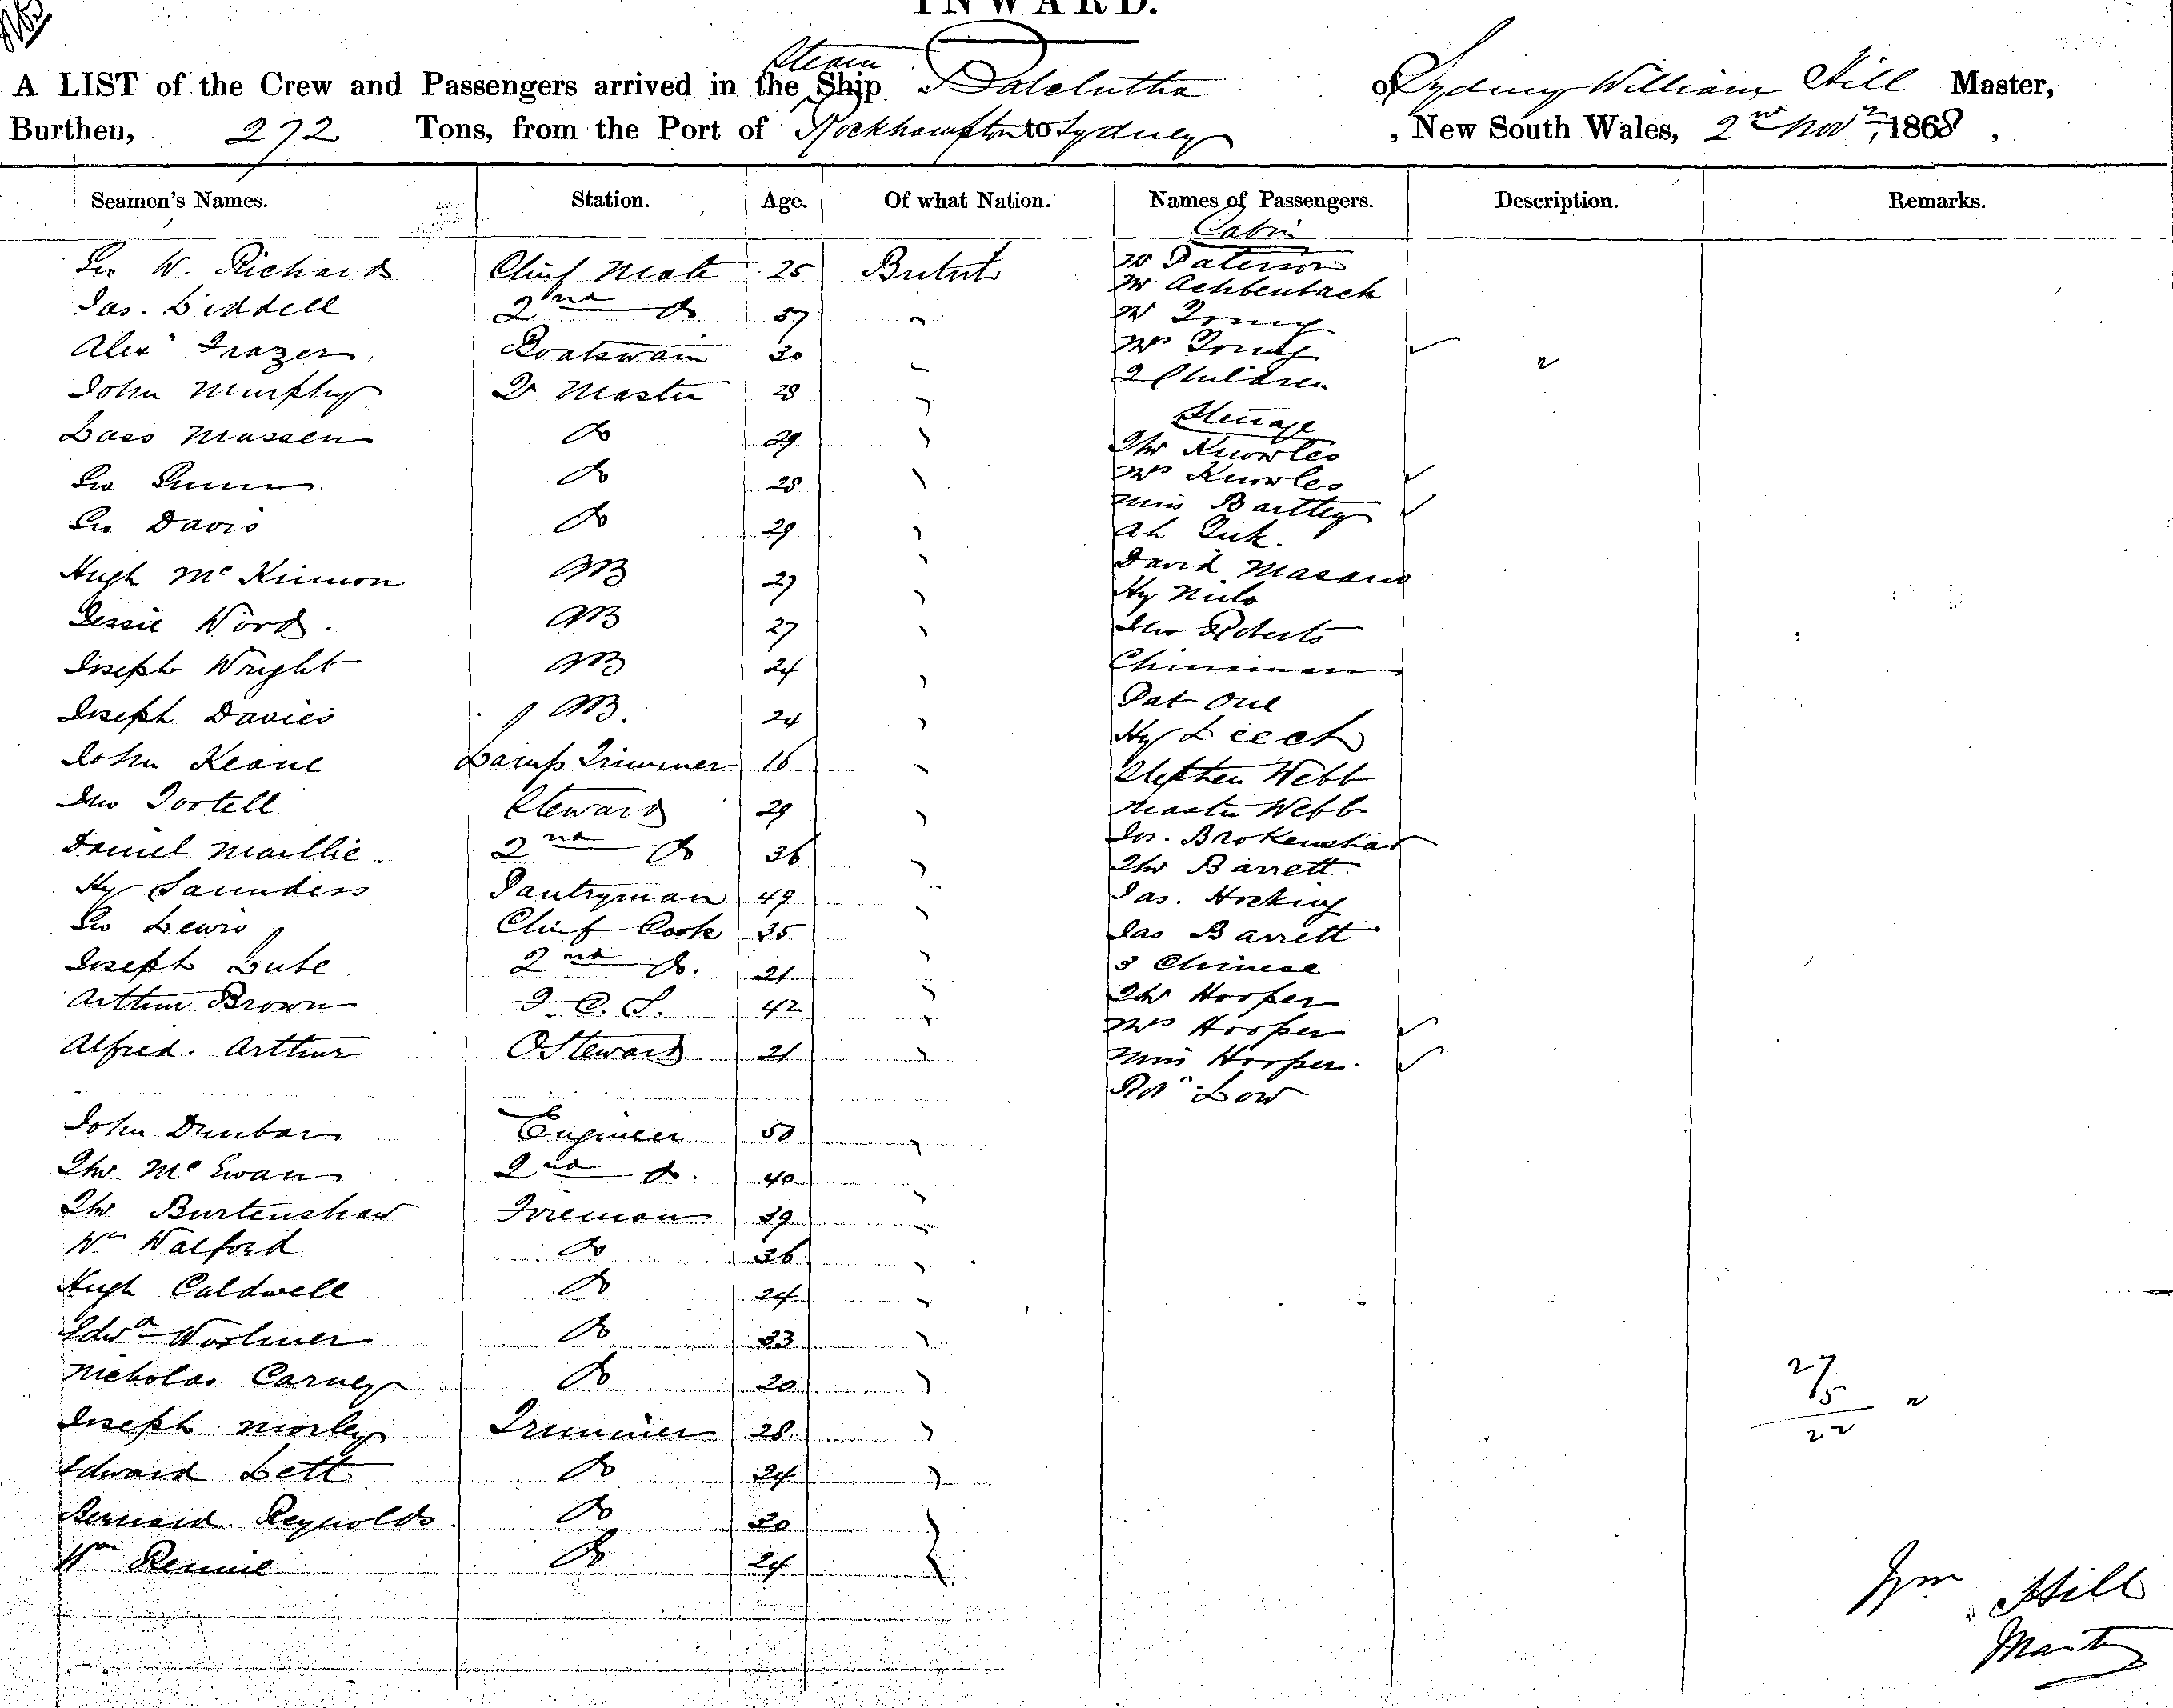 INWARD.
A LIST of the Crew and Passengers arrived in the Steam Ship Balclutha of Sydney William Hill Master,
Burthen, 272 Tons, from the Port of Rockhampton to Sydney, New South Wales, 2nd Novr 1868,
Seamen's Names. Station. Age. Of what Nation. Names of Passengers. Description. Remarks.
Cabin
Geo W. Richards Chief Mate 25 British Mr Paterson
Mr Achbenback
Jas. Liddell 2nd Do 57 " Mr Young
Alexr Frazer Boatswain 30 " Mrs Young
2 Children
John Murphy Qr Master 28 "
Steerage
Lass Massen Do 29 " Thos Knowles
Geo Gunn Do 28 " Mrs Knowles
Miss Bartley
Geo Davis Do 29 " Ah
Hugh McKinnon AB 27 " David
Hy
Jessie Word AB 27 " Jno Roberts
Joseph Wright AB 24 " Chinaman
Joseph Davies AB. 24 " Pat
Hy Leech
John Keane Lamp Trimmer 16 " Stephen Webb
Jno Tortell Steward 29 " Master Webb
Jos. Brokenshaw
Daniel Maillie 2nd Do 36 " Thos Barrett
Hy Saunders Pantryman 49 " Jas. Hocking
Geo Lewis Chief Cook 35 " Jas Barrett
Joseph Lube 2nd Do. 21 " 3 Chinese
Arthur Brown F. C. S. 42 " Thos Hooper
Mrs Hooper
Alfred Arthur O Steward 21 " Miss Hooper
Robt Low
John Dunbar Engineer 50 "
Thos McEwan 2nd Do. 40 "
Thos Burtenshaw Fireman 39 "
Wm Walford Do 36 "
Hugh Caldwell Do 24 "
Edwd Woolmer Do 33 "
Nicholas Carney Do 20 " 27
5
22
Joseph Morley Trimmer 28 "
Edward Lett Do 24 "
Bernard Reynolds Do 20
Wm Rennie Do 24
Wm Hill
Master